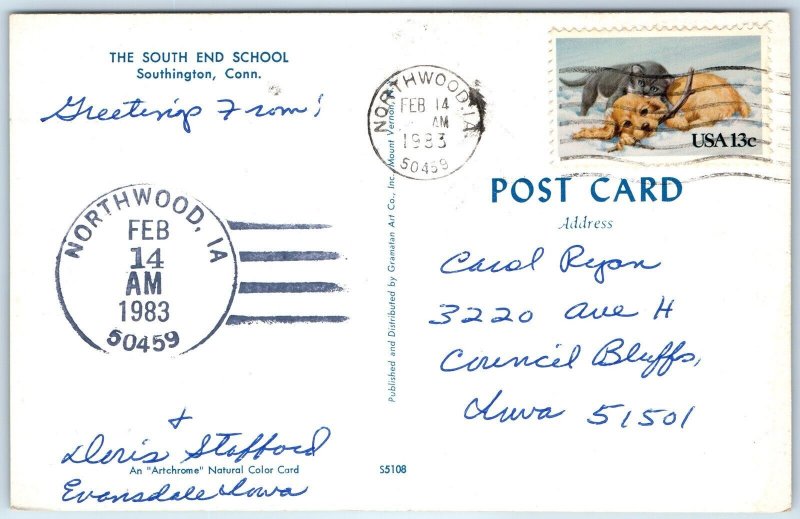 THE SOUTH END SCHOOL
Southington, Conn.
Greetings From!
NORTHWOOD, IA
FEB
14
AM
1983
50459
&
Doris Stafford
An "Artchrome" Natural Color Card
Evansdale Iowa
S5108
Published and Distributed by Gramatan Art Co., Inc., Mount Vernon,
NORTHWOOD, IA.
FEB 14
AM
1983
50459
USA 13c
POST CARD
Address
Carol Ryan
3220 Ave H
Council Bluffs,
Iowa 51501